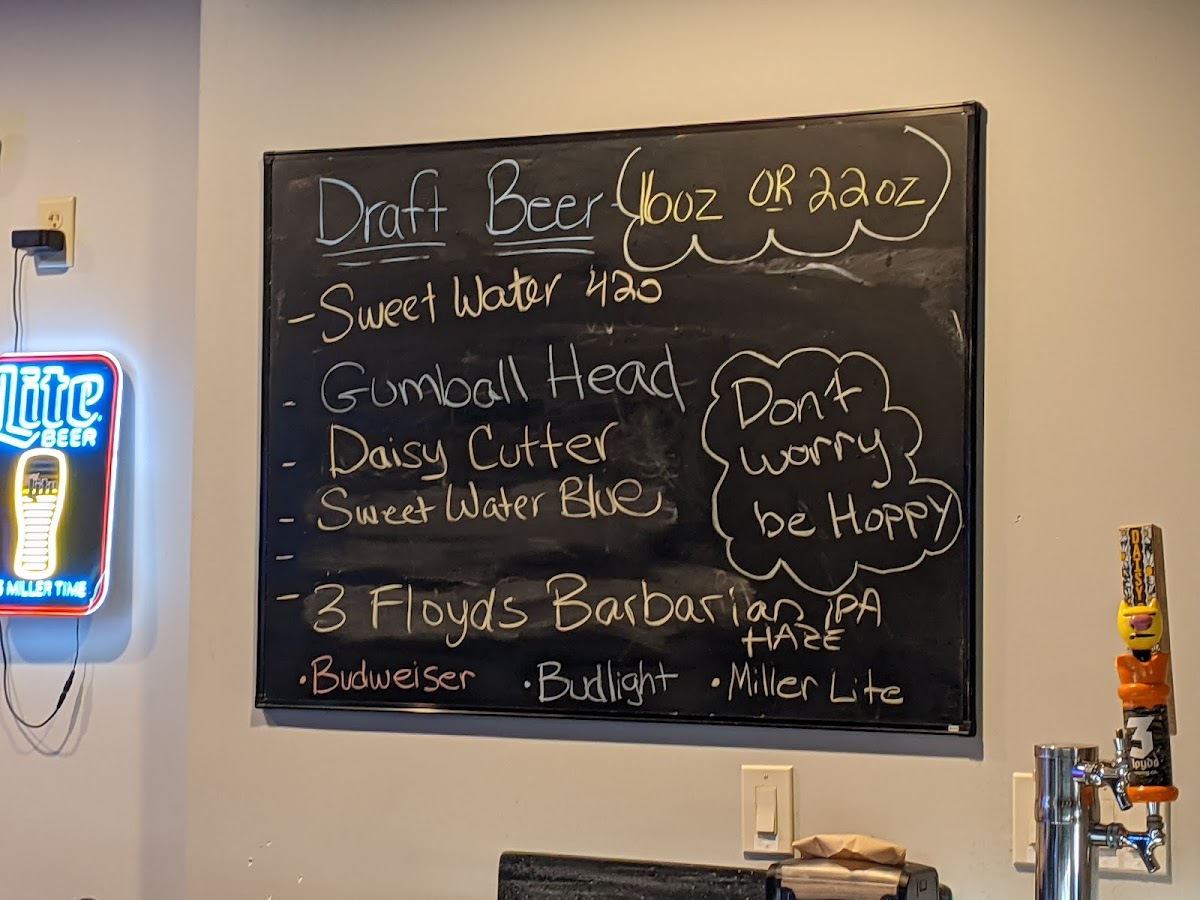 Draft Beer - (16oz OR 22oz)
- Sweet Water 420
- Gumball Head
- Daisy Cutter
- Sweet Water Blue
-
- 3 Floyds Barbarian IPA
HAZE
• Budweiser • Budlight • Miller Lite
Don't
worry
be Hoppy
Lite
BEER
MILLER TIME
DAISY
3
Floyds